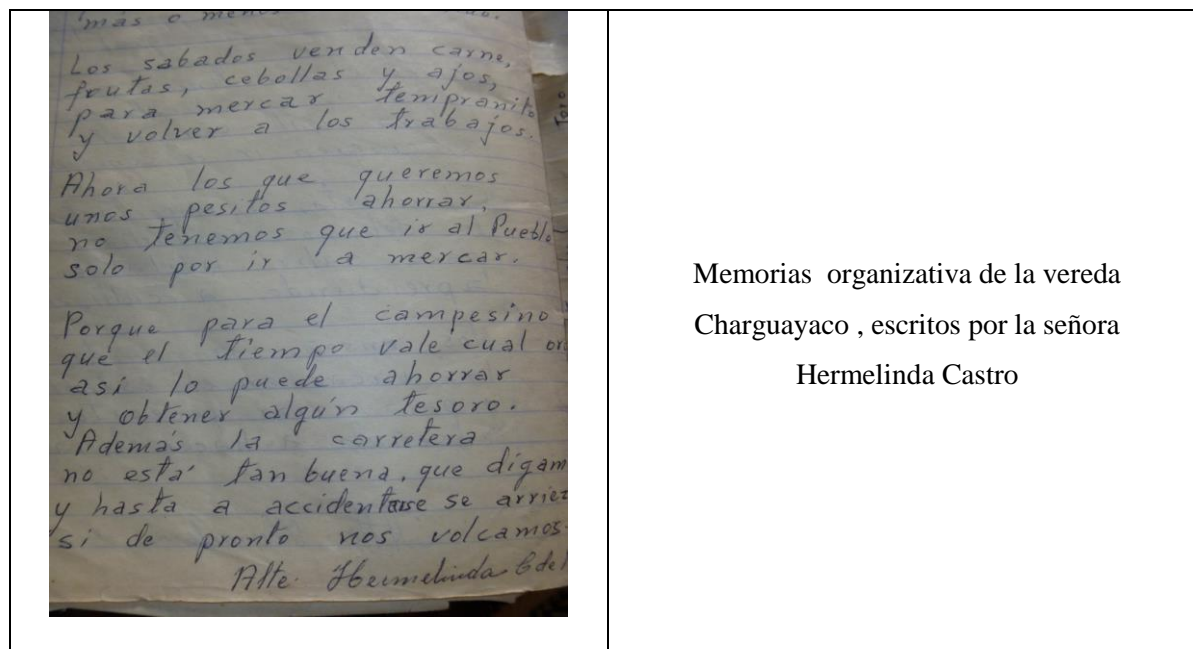 más o menos
Los sabados venden carne,
frutas, cebollas y ajos,
para mercar tempranito
y volver a los trabajos.
Ahora los que queremos
unos pesitos ahorrar,
no tenemos que ir al Pueblo
solo por ir a mercar.
Porque para el campesino
que el tiempo vale cual oro
asi lo puede ahorrar
y obtener algún tesoro.
Además la carretera
no está tan buena, que digam
y hasta a accidentarse se arries
si de pronto nos volcamos.
Atte. Hermelinda C de
Memorias organizativa de la vereda
Charguayaco , escritos por la señora
Hermelinda Castro